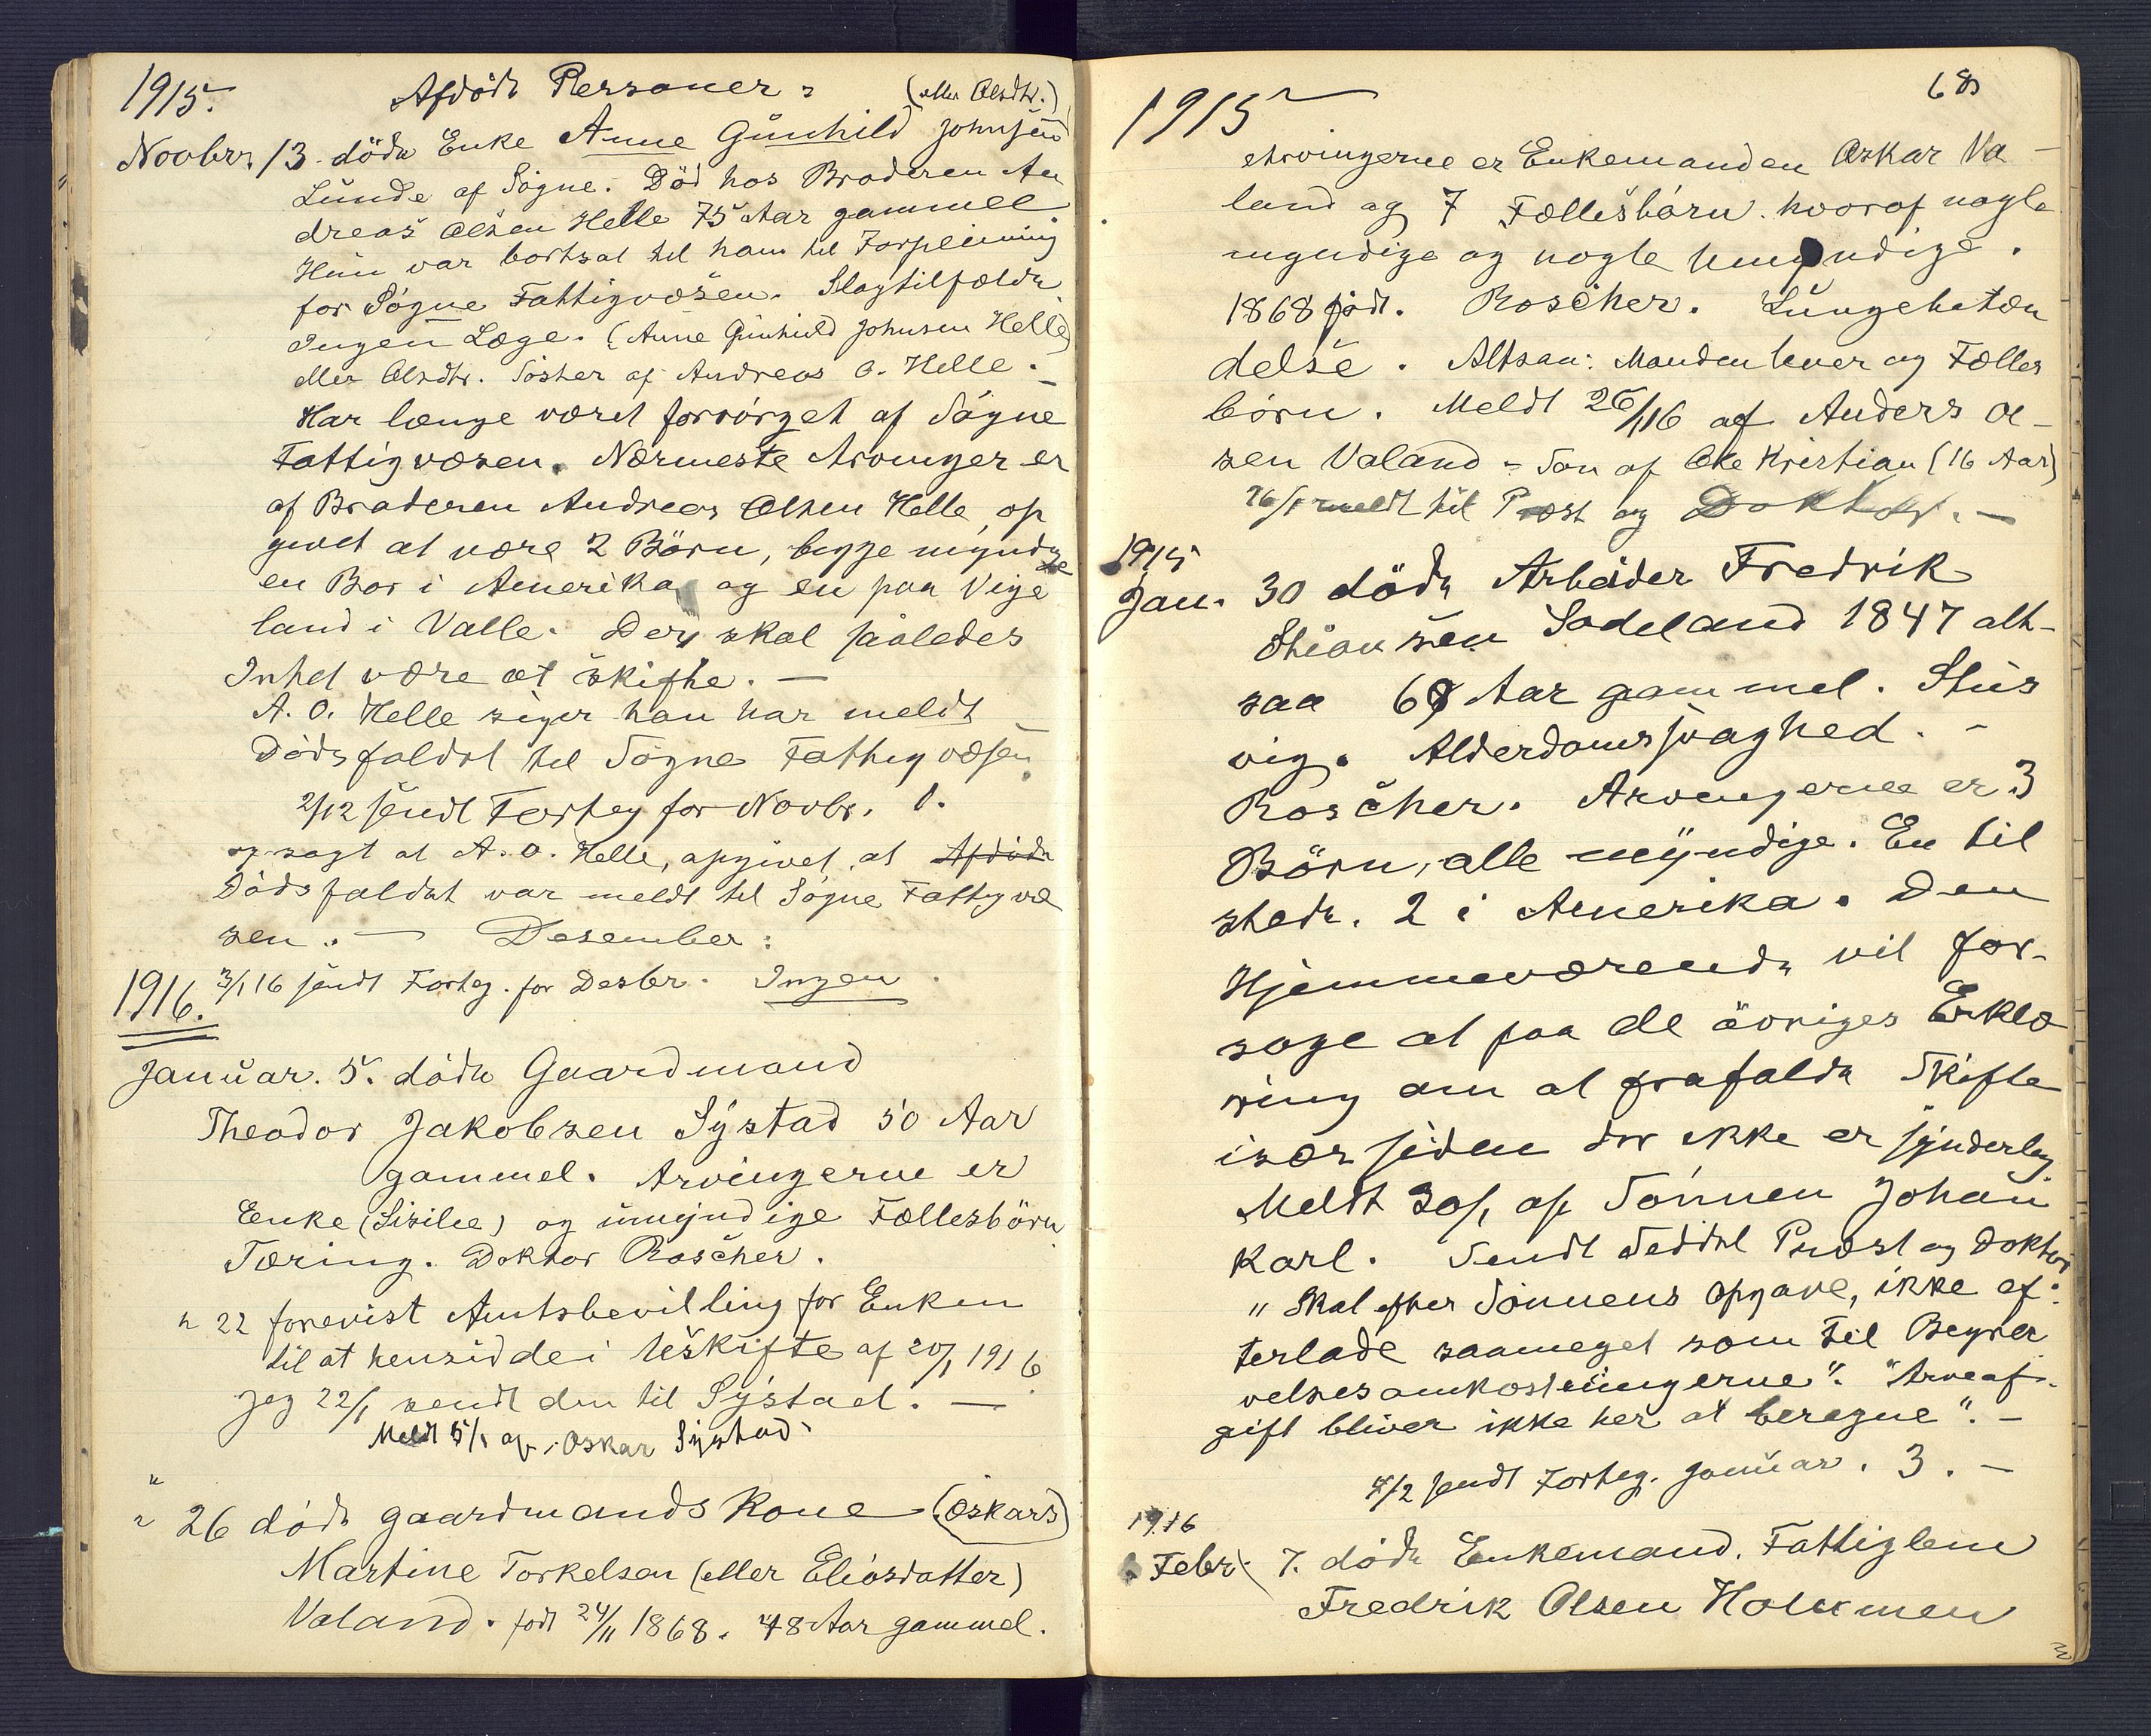 1915. Afdöde Personer
(eller Olsdtr.)
Novbr. 13. döde Enke Anne Gunhild Johnsen
Lunde af Sögne. Död hos Broderen An
dreas Olsen Helle 75 Aar gammel
Hun var bortsat til ham til Forpleining
for Sögne Fattigvæsen. Slagtilfælde
Ingen Læge. (Anne Gunhild Johnsen Helle)
eller Olsdtr. Söster af Andreas O. Helle.
Har længe været forsörget af Sögne
Fattigvæsen. Nærmeste Arvinger er
af Broderen Andreas Olsen Helle, op
givet at være 2 Börn, begge myndige
en Bor i Amerika og en paa Vige
land i Valle. Der skal saaledes
Intet være at skifte. —
A. O. Helle siger han har meldt
Dödsfaldet til Sögne Fattigvæsen.
2/12 sendt Forteg for Novbr. 1.
og sagt at A. O. Helle, opgivet, at Afdöde
Dödsfaldet var meldt til Sögne Fattigvæ
sen. — Desember:
3/1 16 sendt Forteg. for Desbr. Ingen
1916.
Januar. 5. döde Gaardmand
Theodor Jakobsen Systad 50 Aar
gammel. Arvingerne er
Enke (Sisilie) og umyndige Fællesbörn
Tæring. Doktor Roscher.
" 22 forevist Amtsbevilling for Enken
til at hensidde i Uskifte af 20/1 1916
Jeg 22/1 sendt den til Systad. —
Meldt 5/1 af Oskar Systad
" 26 döde gaardmands Kone (Oskars)
Martine Torkelsen (eller Eliasdatter)
Valand. født 24/11 1868. 48 Aar gammel.
68
1915
Arvingerne er Enkemanden Oskar Va-
land og 7 Fællesbörn. hvoraf nogle
myndige og nogle umyndige.
1868 född. Roscher. Lungebetæn
delse. Altsaa: Manden lever og Fælles
börn. Meldt 26/1 16 af Anders Ol-
sen Valand = Sön af Ole Kristian (16 Aar)
26/1 meldt til Præst og Doktor. —
1915
Jan. 30 döde Arbeider Fredrik
Stiansen Sodeland 1847 alt-
saa 69 Aar gammel. Stus
vig. Alderdomssvaghed. —
Roscher. Arvingerne er 3
Börn, alle myndige. En til
stede. 2 i Amerika. Den
Hjemmeværende vil for-
söge at faa de övriges Erklæ
ring om at frafalde Skifte
især siden der ikke er synderlig
Meldt 30/1 af Sönnen Johan
Karl. Sendt Seddel Præst og Doktor
"Skal efter Sönnens Opgave, ikke ef-
terlade saameget som til Begra
velsesomkostningerne". "Arveaf-
gift bliver ikke her at beregne". —
4/2 sendt Forteg. Januar. 3. —
1916
Febr. 7. döde Enkemand. Fattiglem
Fredrik Olsen Holmen